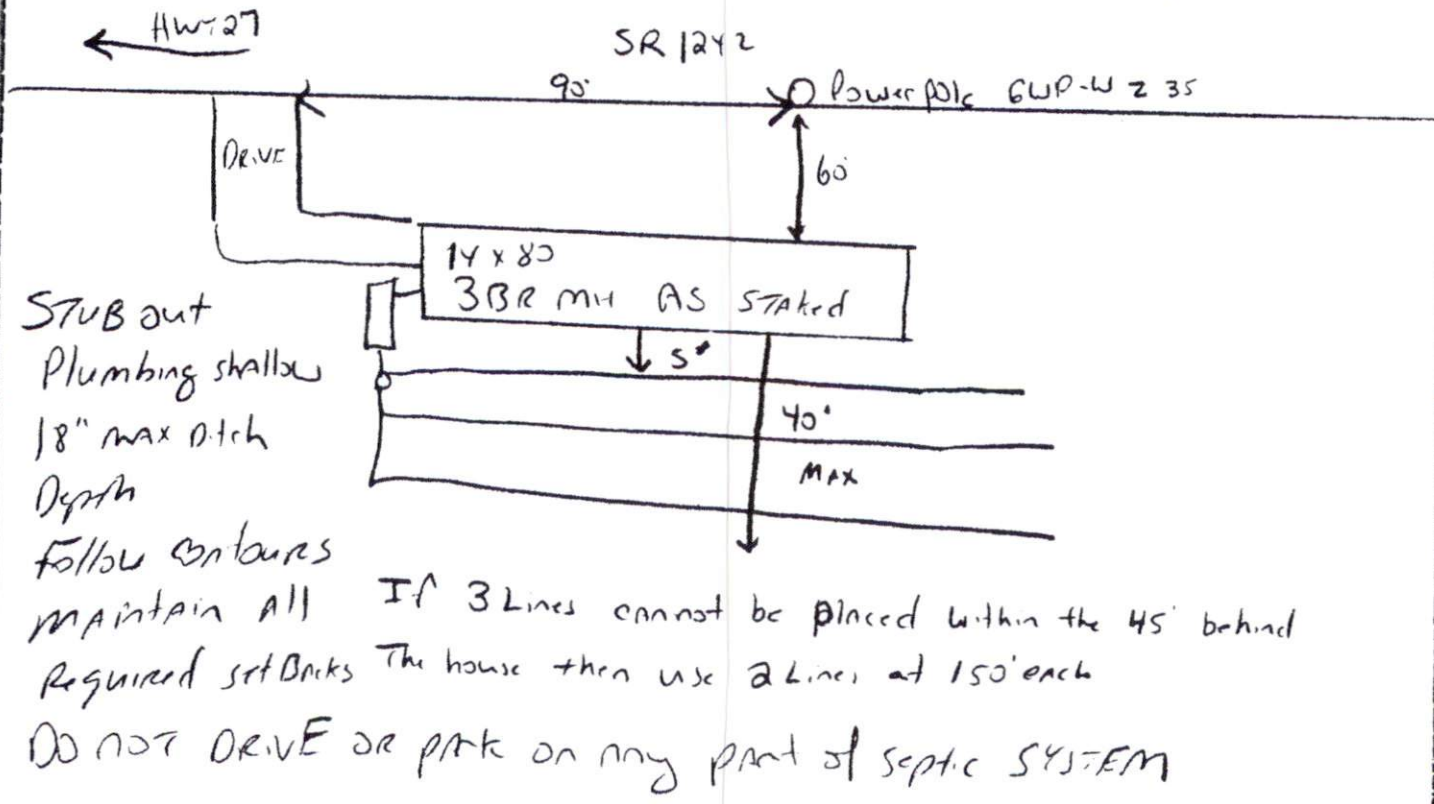 HWY 27
SR 1242
90'
Power pole GWP-W Z 35
DRIVE
60'
14 x 80
3BR MH AS STAKed
5'
40'
MAX
STUB out
Plumbing shallow
18" max Ditch
Depth
Follow Contours
MAintAin All
Required setBacks
If 3 Lines cannot be placed within the 45' behind
The house then use 2 Lines at 150' each
DO NOT DRIVE OR park on any part of septic SYSTEM